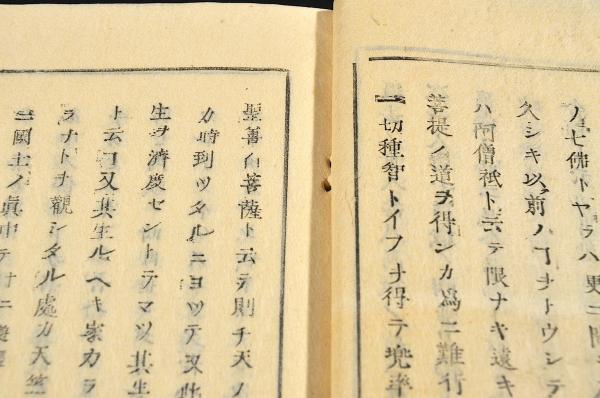 ノ七佛トヤラハ更ニ
久シキ以前ノヿナトウシテ
ハ阿僧祇ト云テ限ナキ遠キ
菩提ノ道ヲ得ンカ爲ニ難行
一切種智トイフヲ得テ兜率
聖善白菩薩ト云テ則チ天人
カ時到ツタルニヨツテ又此
生ヲ濟度セントテマツ其生
ト云ヿ又其生ルヘキ家カラ
ヲナトナ觀シタル處カ天竺
三國土ノ眞中テナニ